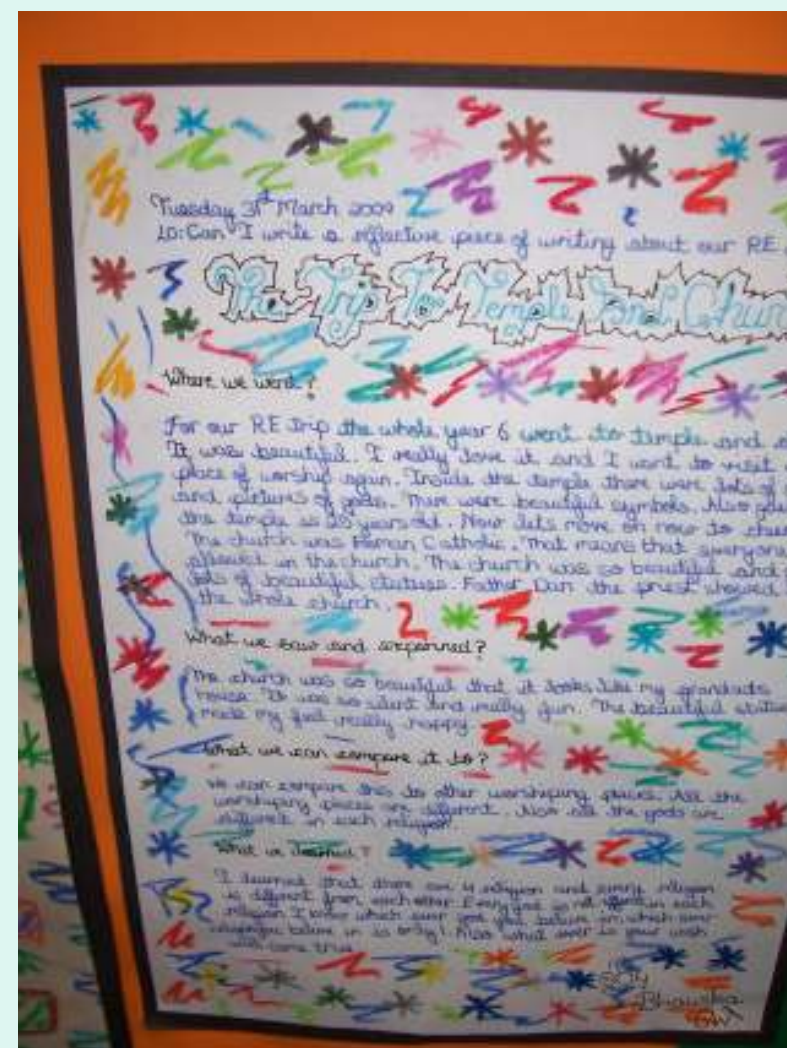 Tuesday 31st March 2009
LO: Can I write a effective piece of writing about our RE
The Trip To Temple And Chur
Where we went?
For our RE trip the whole year 6 went to temple and
It was beautiful. I really love it and I want to visit
place of worship again. Inside the temple there were lots of
and pictures of gods. There were beautiful symbols. Also
the temple is 25 years old. Now lets move on now to
The church was Roman Catholic. That means that everyone
allowed in the church. The church was so beautiful and
lots of beautiful statues. Father Dan the priest showed
the whole church.
What we saw and
The church was so beautiful that it looks like my grandads
house. It was so silent and really fun. The beautiful
made my feel really happy.
What we can compare it to?
We can compare this to other worshiping places. All the
worshiping places are different. Also all the gods are
different in each religion.
What we learned?
I learned that there are religion and every religion
is different from each other. Every god is in each
religion I know which ever god believe in which ever
believe in is only 1. Also what ever is your wish
will come true.
By
Bhavika
6W